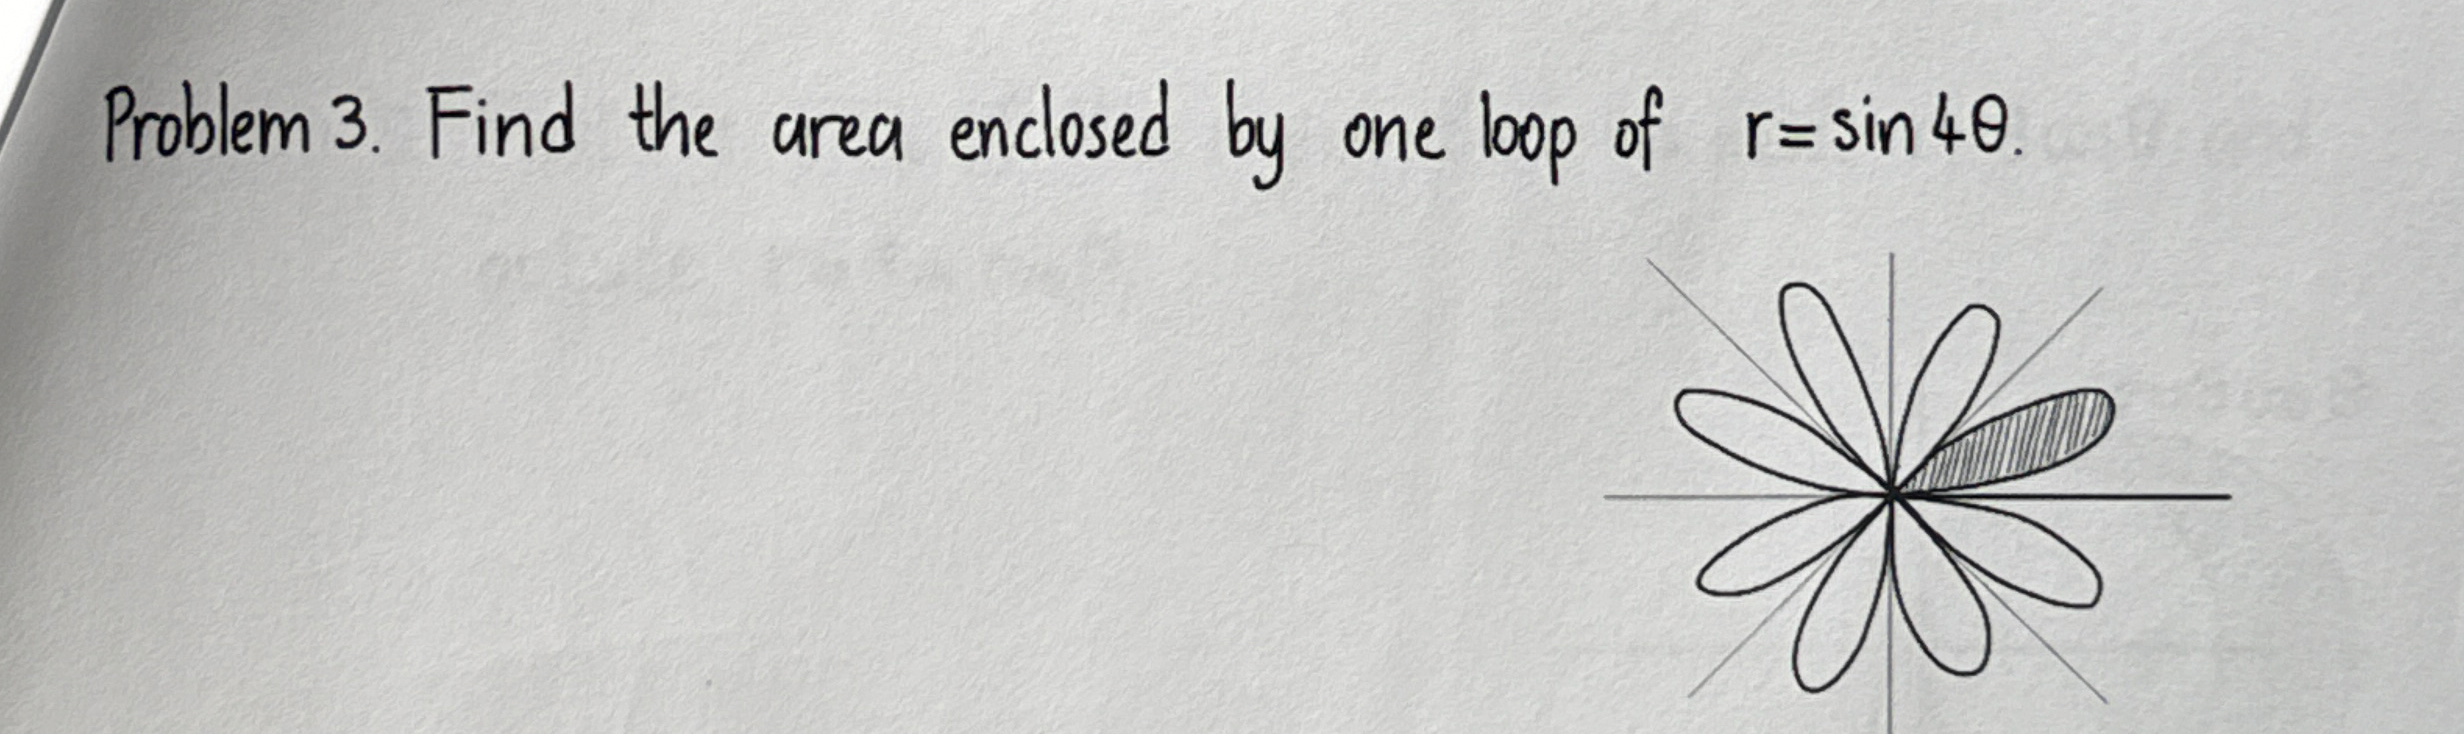 Problem 3. Find the area enclosed by one loop of r = sin 4θ.